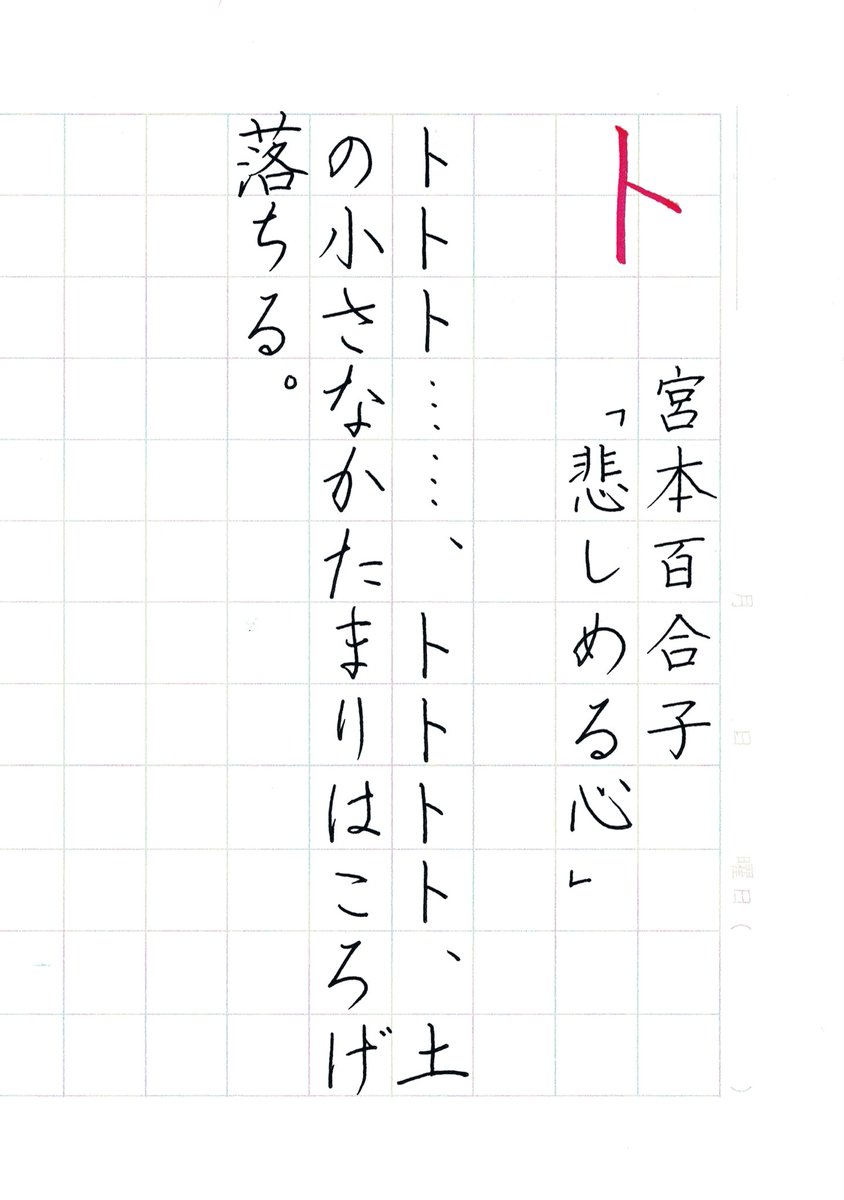 ト
宮本百合子
「悲しめる心」
トトト……、トトトト、土
の小さなかたまりはころげ
落ちる。
月 日 曜日( )